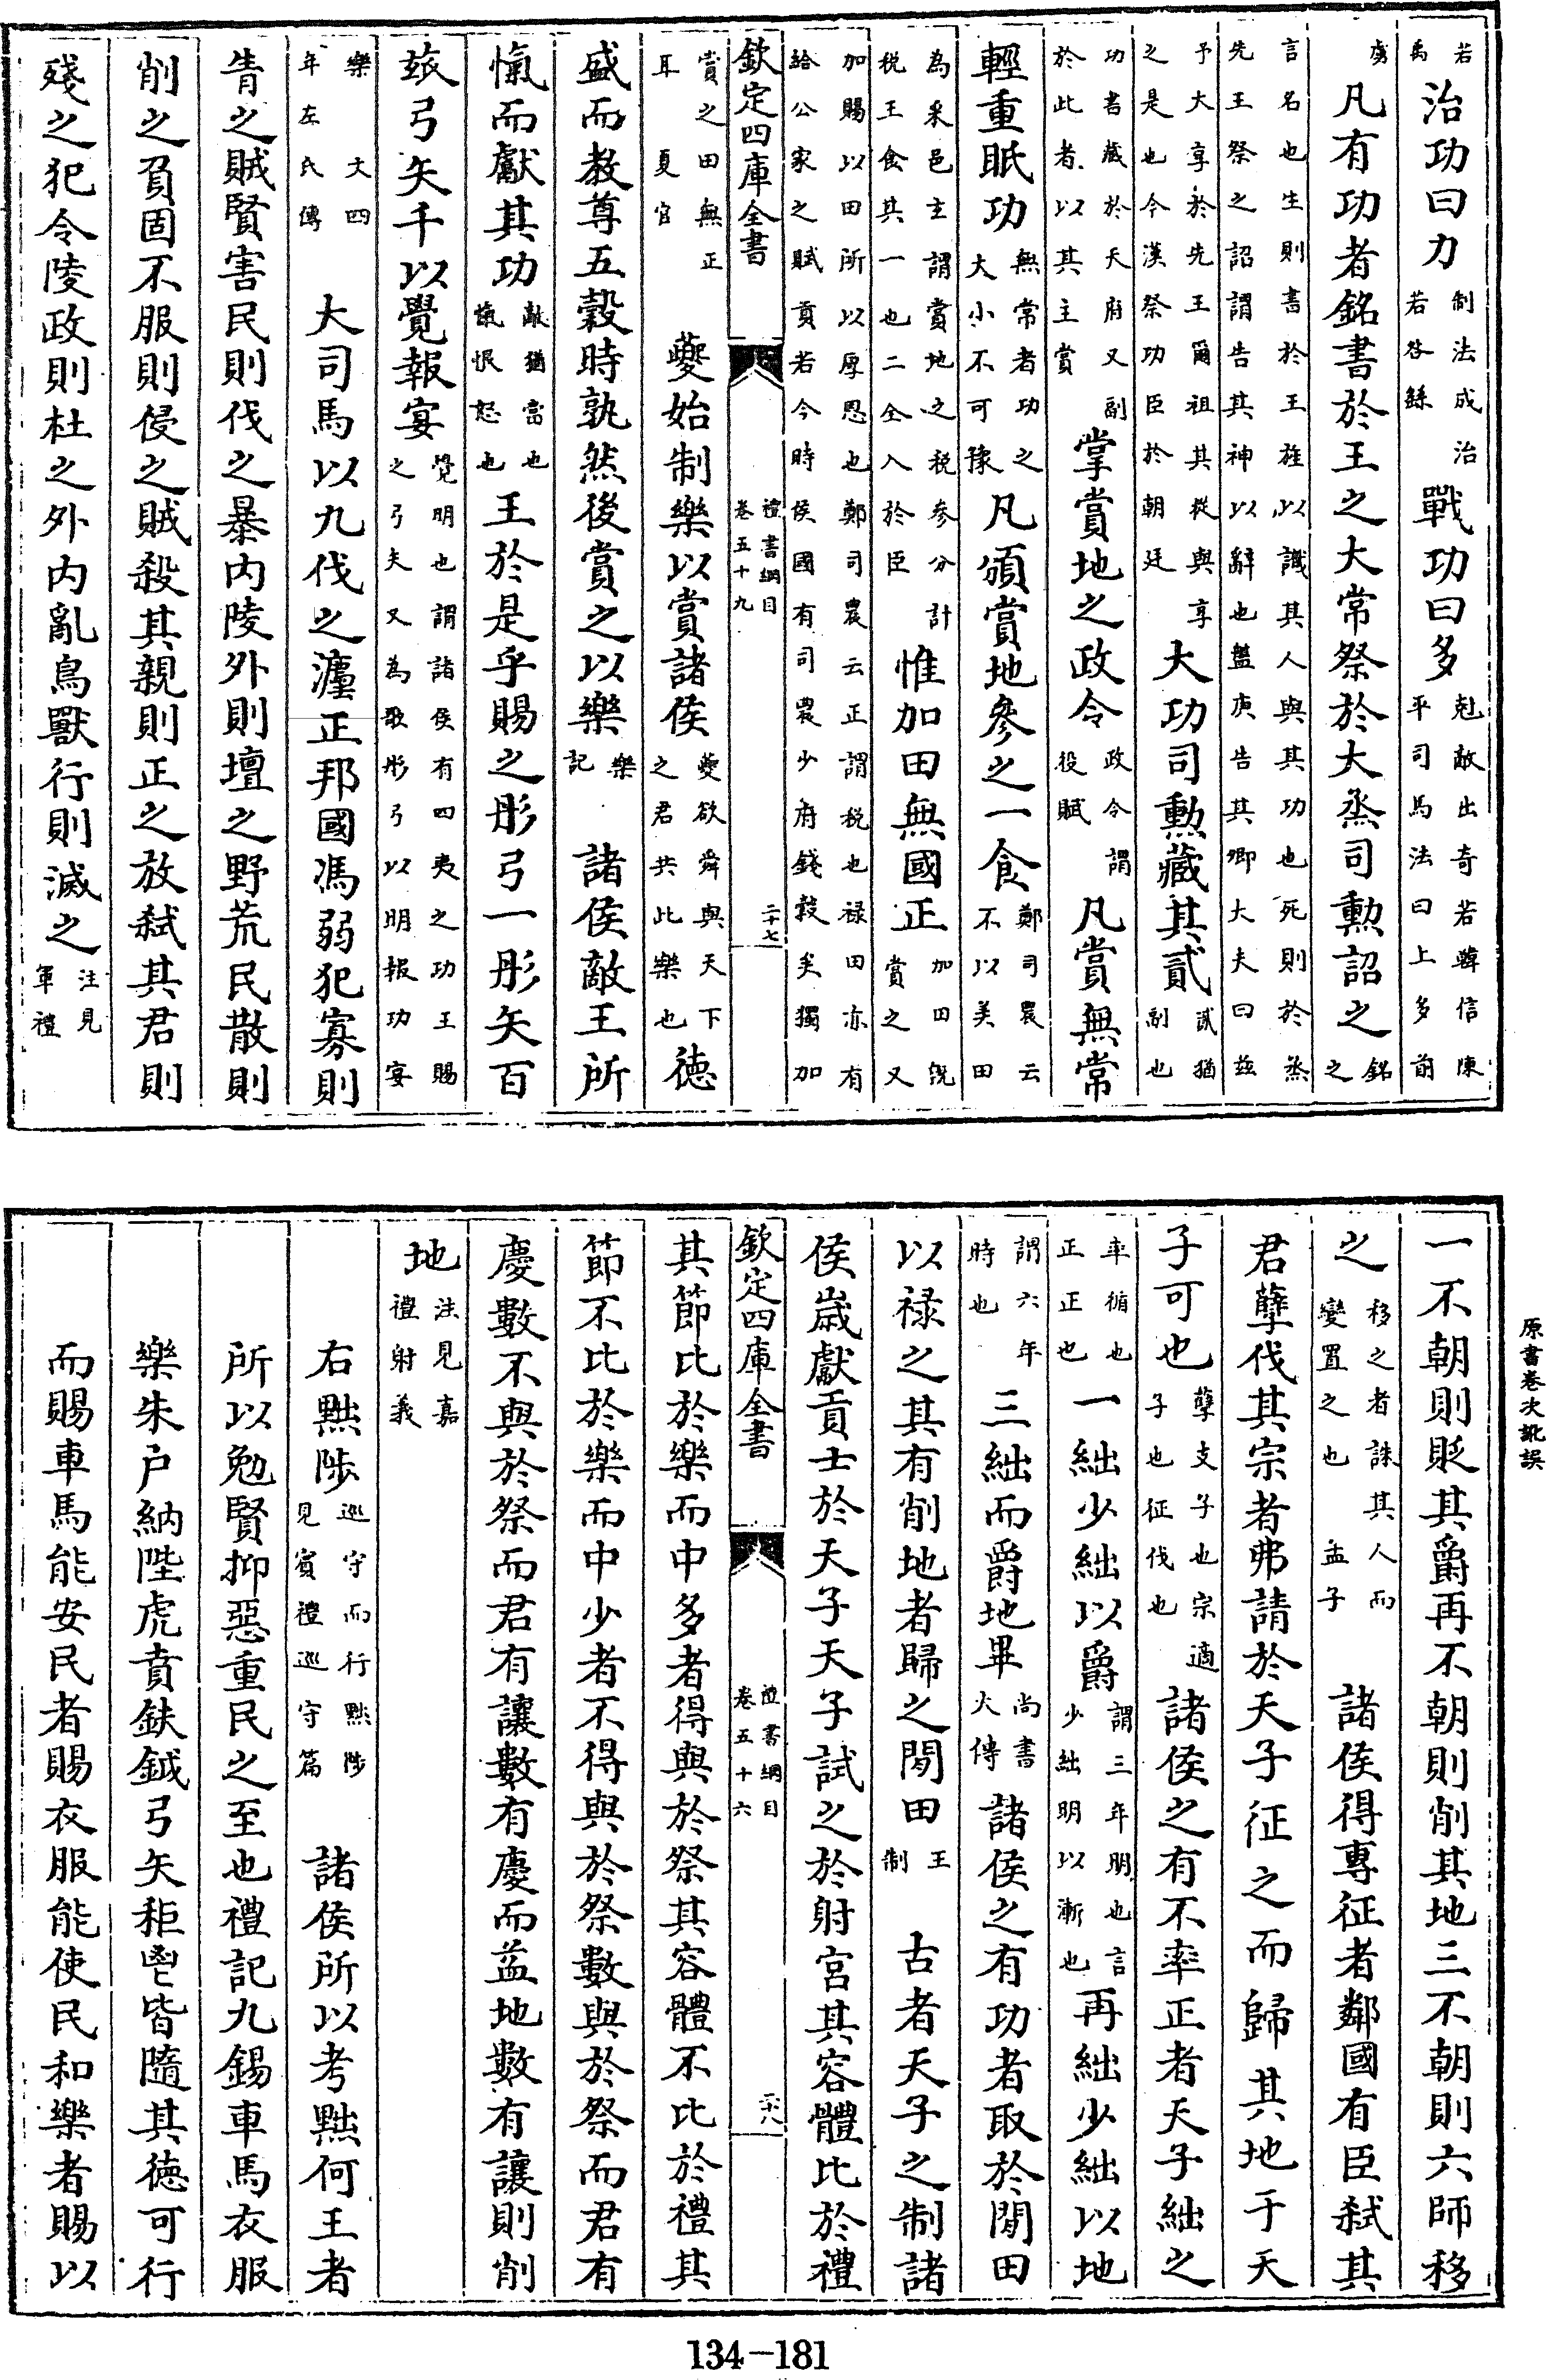 若禹治功曰力制法成治若咎繇戰功曰多剋敵出奇若韓信陳平司馬法曰上多前
虜凡有功者銘書於王之大常祭於大烝司勲詔之銘之
言名也生則書於王旌以識其人與其功也死則於烝先王祭之詔謂告其神以辭也盤庚告其卿大夫曰兹
予大享於先王爾祖其從與享之是也今漢祭功臣於朝廷大功司勲藏其貳貳猶副也
功書藏於天府又副於此者以其主賞掌賞地之政令政令謂役賦凡賞無常
輕重眂功無常者功之大小不可豫凡頒賞地參之一食鄭司農云不以美田
為采邑主謂賞地之税參分計税王食其一也二全入於臣惟加田無國正加田既賞之又
加賜以田所以厚恩也鄭司農云正謂税也禄田亦有給公家之賦貢若今時侯國有司農少府錢穀矣獨加
欽定四庫全書 禮書綱目卷五十九 二十七
賞之田無正耳夏官 夔始制樂以賞諸侯夔欲舜與天下之君共此樂也德
盛而教尊五穀時孰然後賞之以樂樂記 諸侯敵王所
愾而獻其功敵猶當也愾恨怒也王於是乎賜之彤弓一彤矢百
玈弓矢千以覺報宴覺明也謂諸侯有四夷之功王賜之弓矢又為歌彤弓以明報功宴
樂文四年左氏傳 大司馬以九伐之灋正邦國馮弱犯寡則
眚之賊賢害民則伐之暴内陵外則壇之野荒民散則
削之負固不服則侵之賊殺其親則正之放弑其君則
殘之犯令陵政則杜之外内亂鳥獸行則滅之注見軍禮
原書卷次訛誤
一不朝則貶其爵再不朝則削其地三不朝則六師移
之移之者誅其人而變置之也孟子 諸侯得專征者鄰國有臣弑其
君孽伐其宗者弗請於天子征之而歸其地于天
子可也孽支子也宗適子也征伐也諸侯之有不率正者天子絀之
率循也正正也一絀少絀以爵謂三年朋也言少絀明以漸也再絀少絀以地
謂六年時也三絀而爵地畢尚書大傳 諸侯之有功者取於閒田
以禄之其有削地者歸之閒田王制 古者天子之制諸
侯歲獻貢士於天子天子試之於射宮其容體比於禮
欽定四庫全書 禮書綱目卷五十六 二十八
其節比於樂而中多者得與於祭其容體不比於禮其
節不比於樂而中少者不得與於祭數與於祭而君有
慶數不與於祭而君有讓數有慶而益地數有讓則削
地注見嘉禮射義
右黜陟巡守而行黜陟見賓禮巡守篇 諸侯所以考黜何王者
所以勉賢抑惡重民之至也禮記九錫車馬衣服
樂朱户納陛虎賁鈇鉞弓矢秬鬯皆隨其德可行
而賜車馬能安民者賜衣服能使民和樂者賜以
134-181